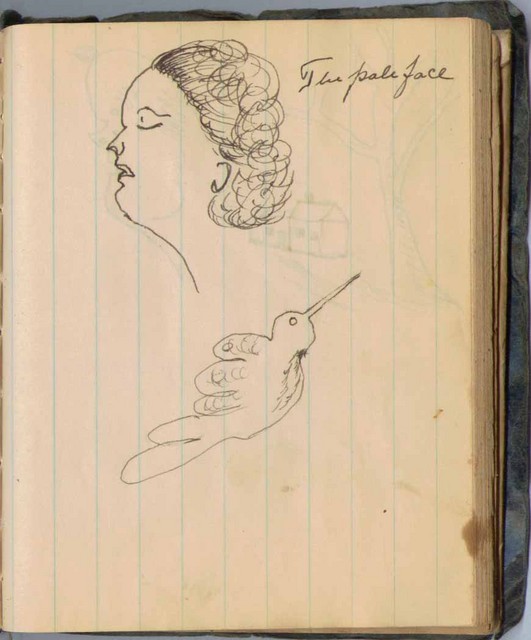 The pale face